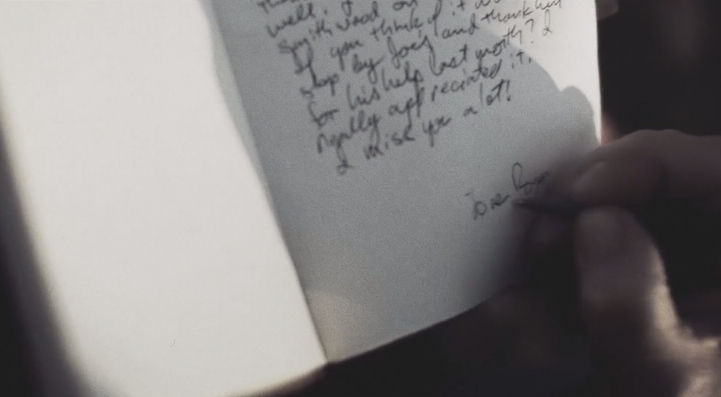 well. I
Smith Wood on
If you think if it w
stop by Joe's and thank him
for his help last month? I
really appreciated it.
I miss you a lot!
Love